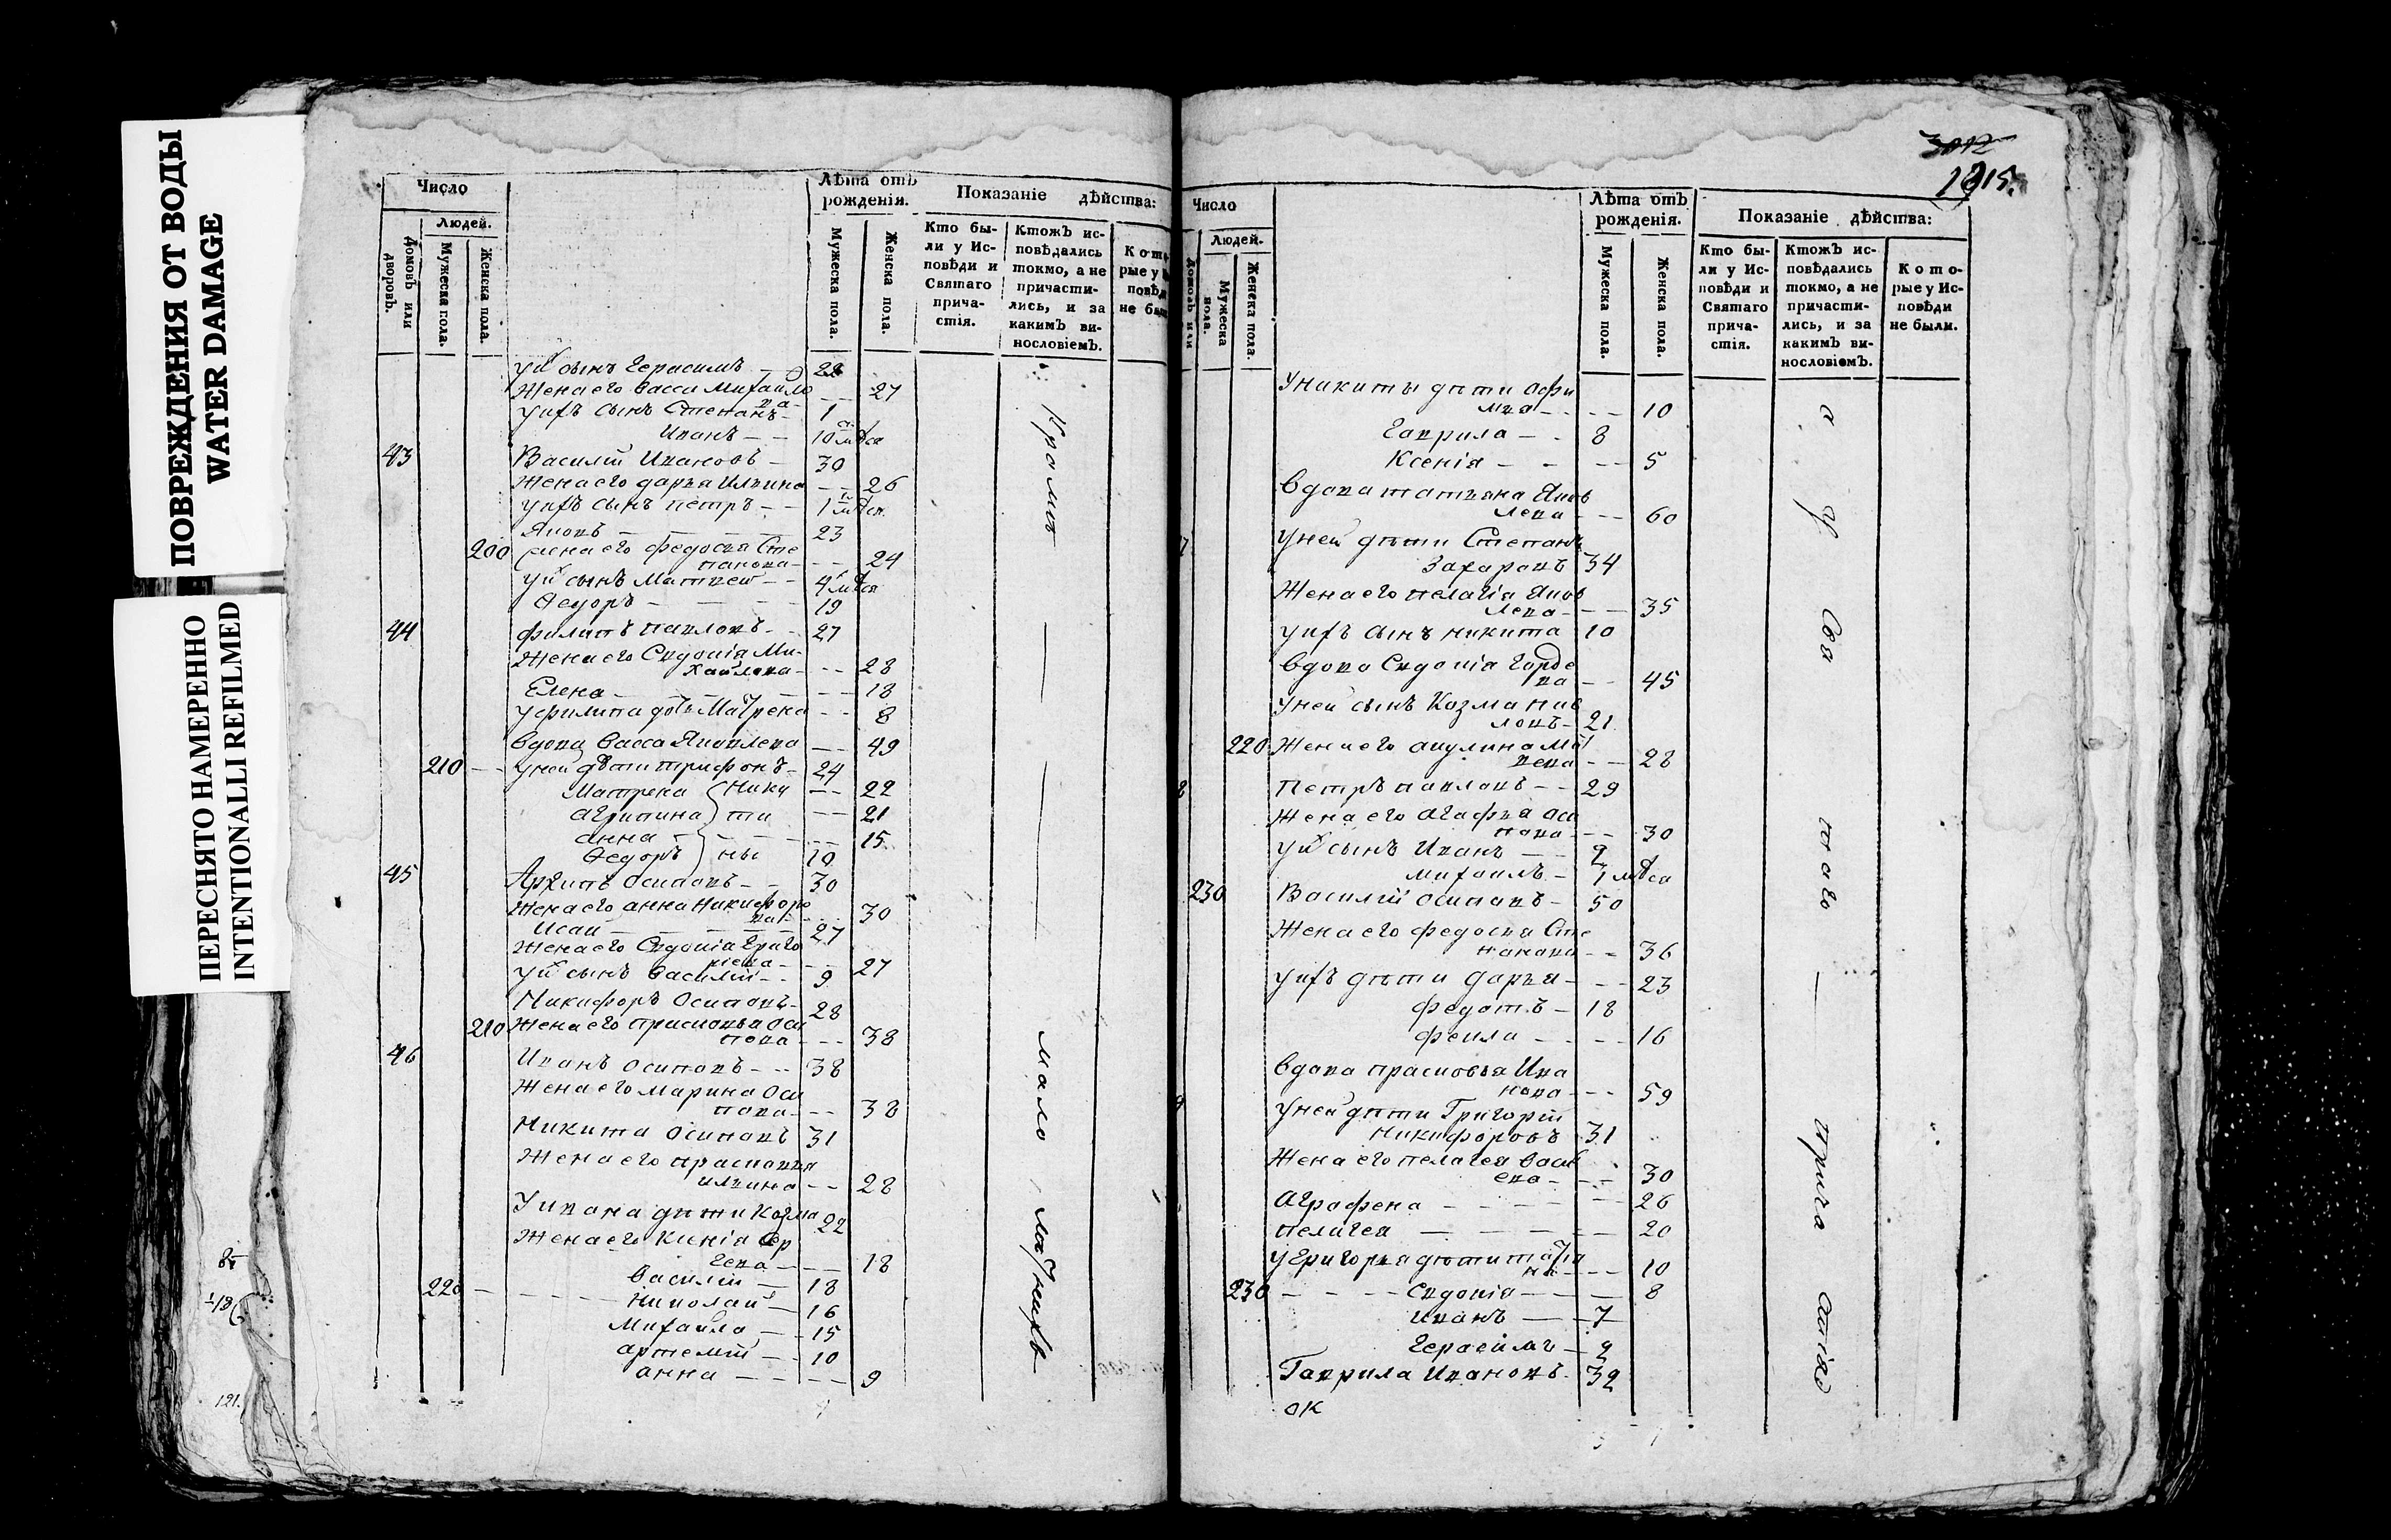 ПОВРЕЖДЕНИЯ ОТ ВОДЫ
WATER DAMAGE
ПЕРЕСНЯТО НАМЕРЕННО
INTENTIONALLI REFILMED
Число
Людей.
Домовъ или дворовъ.
Мужеска пола.
Женска пола.
Лѣта отъ рожденія.
Мужеска пола.
Женска пола.
Показаніе дѣйства:
Кто бы-
ли у Ис-
повѣди и
Святаго
прича-
стія.
Ктожъ ис-
повѣдались
токмо, а не
причасти-
лись, и за
какимъ ви-
нословіемъ.
сынъ Герасимъ
Жена его Васса Михайло
ва 27
у ихъ сынъ Степанъ 1
Иванъ 10
43 Василій Ивановъ 30
Жена его дарья Ильина 26
у ихъ сынъ петръ 1
Яковъ 23
200 Жена его федосья Сте
панова 24
сынъ Матвей 4
Ѳедоръ 19
44 филипъ павловъ 27
Жена его Евдокія Ми-
хайлова 28
Елена 18
у филипа дочь Матрена 8
вдова Васса Яковлева 49
210 у ней дѣти трифонъ 24
Матрена Ники 22
агрипина ти 21
анна 15
Ѳедоръ ны 10
45 Архипъ осиповъ 30
Жена его анна Никифоро
ва 30
Исаи 27
Жена его Евдокія Григо
рьева 27
сынъ василій 9
Никифоръ Осиповъ 28
210 Жена его прасковья оси
пова 38
46 Иванъ осиповъ 38
Жена его Марина Оси
пова 38
Никита осиповъ 31
Жена его прасковья
ильина 28
У ивана дѣти козма 22
Жена его Ксенія Сер
геева 18
220 василій 18
Николай 16
Михайла 15
артемій 10
анна 9
Кромѣ
мало
121.
1815.
Число
Людей.
Мужеска пола.
Женска пола.
Лѣта отъ рожденія.
Мужеска пола.
Женска пола.
Показаніе дѣйства:
Кто бы-
ли у Ис-
повѣди и
Святаго
прича-
стія.
Ктожъ ис-
повѣдались
токмо, а не
причасти-
лись, и за
какимъ ви-
нословіемъ.
Кото-
рые у Ис-
повѣди
не были.
У никиты дѣти офи
мья 10
гаврила 8
Ксенія 5
вдова татьяна Яков
лева 60
у ней дѣти Степанъ
Захаровъ 34
Жена его пелагія Яков
лева 35
у ихъ сынъ никита 10
вдова Евдокія Горде
ва 45
у ней сынъ Козма
21
220 Жена его акулина
28
Петръ павловъ 29
Жена его агафья оси
пова 30
сынъ Иванъ 2
михаилъ 1
230 Василій осиповъ 50
Жена его федосья Сте
панова 36
у ихъ дѣти дарья 23
федотъ 18
фекла 16
вдова прасковья Ива
нова 59
у ней дѣти Григорій
Никифоровъ 31
Жена его пелагея васил
ева 30
аграфена 26
пелагея 20
у Григорья дѣти татья
на 10
230 Евдокія 8
иванъ 7
герасимъ 2
Гаврила Ивановъ 32
Свя
таго
прича
стія